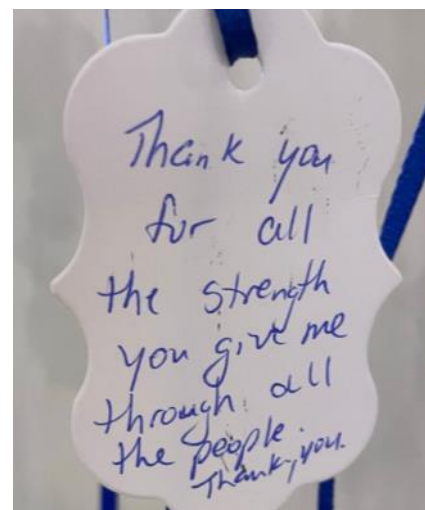 Thank you
for all
the strength
you give me
through all
the people.
Thank, you.